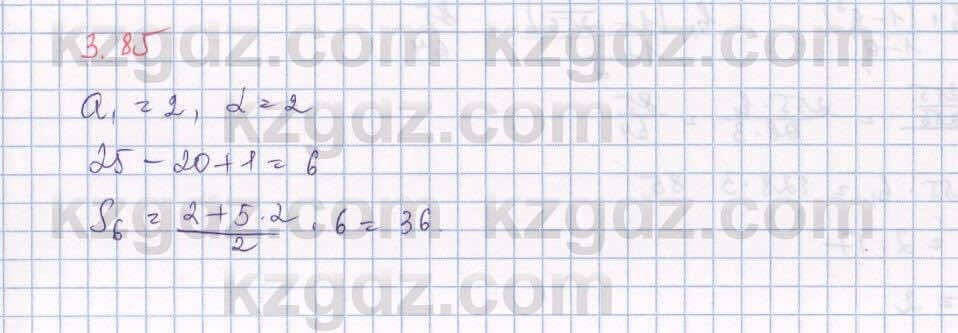 3.85
a₁ = 2, d = 2
25 - 20 + 1 = 6
S₆ = (2 + 5 · 2)/2 · 6 = 36.
kzgdz.com
kzgdz.com
kzgdz.com
kzgdz.com
kzgdz.com
kzgdz.com